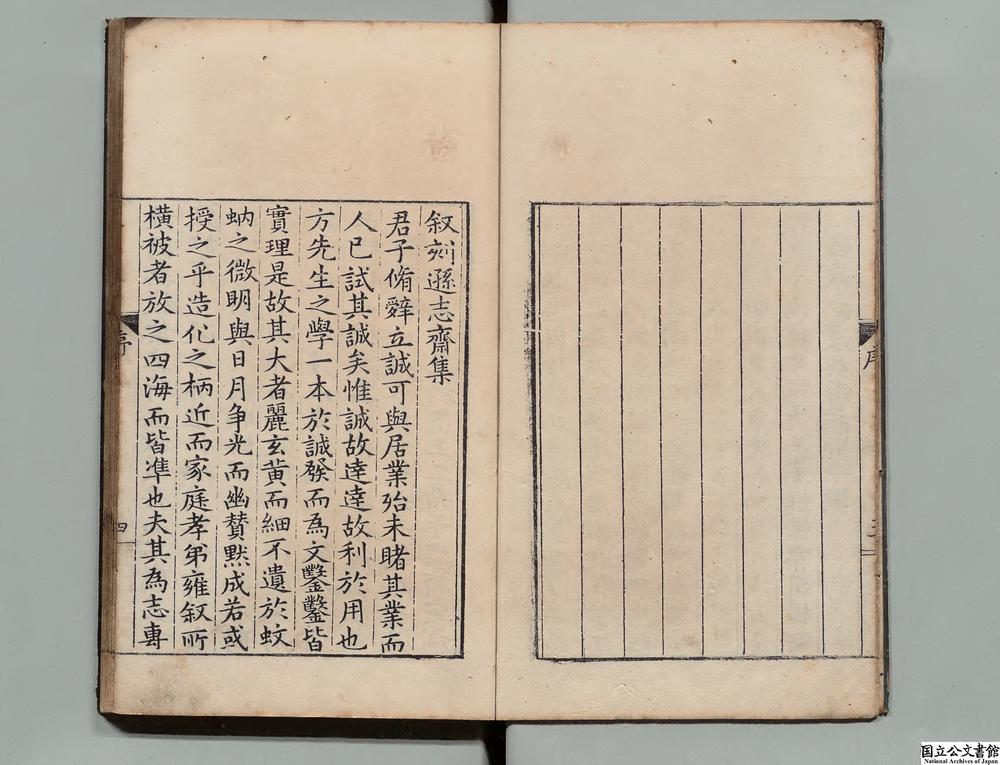 叙刻遜志齋集
君子脩辭立誠可與居業殆未睹其業而
人已試其誠矣惟誠故達達故利於用也
方先生之學一本於誠發而為文鑿鑿皆
實理是故其大者麗玄黃而細不遺於蚊
蚋之微明與日月争光而幽賛黙成若或
授之乎造化之柄近而家庭孝弟雍叙所
橫被者放之四海而皆準也夫其為志專
序
四
序
国立公文書館
National Archives of Japan